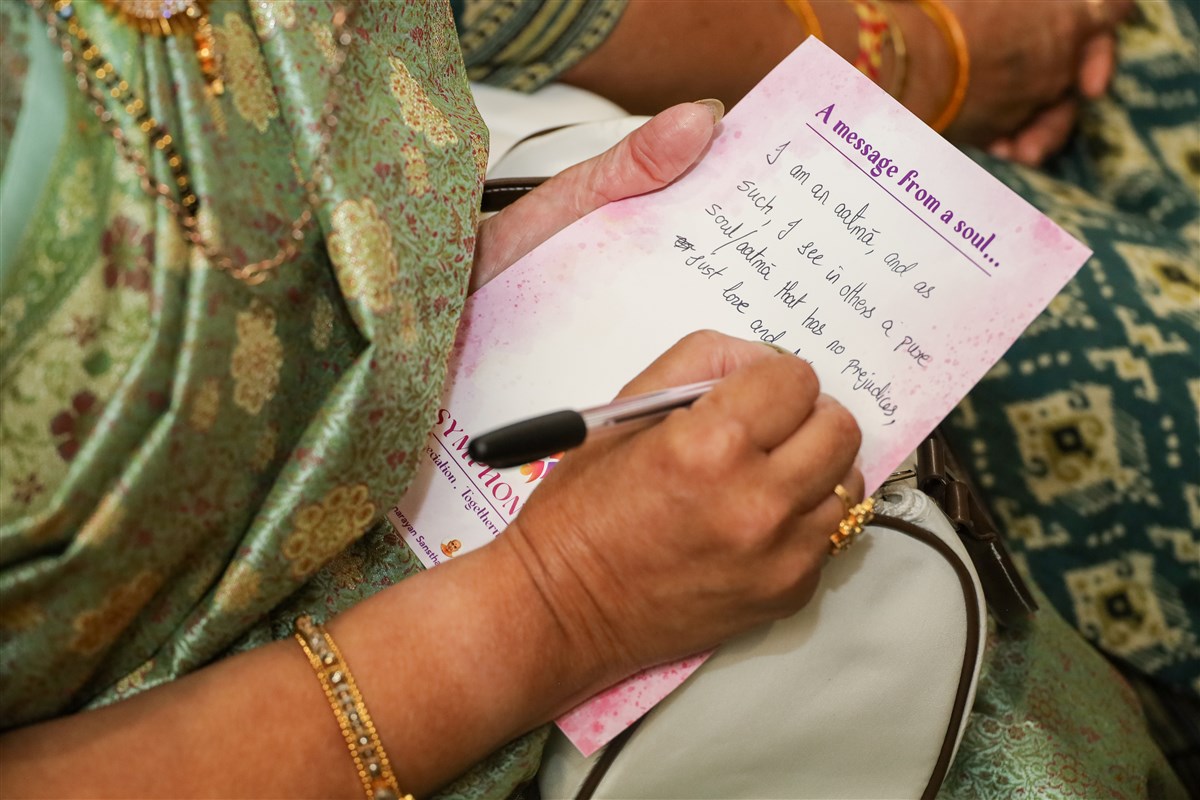 A message from a soul...
I am an aatmā, and as
such, I see in others a pure
soul/aatmā that has no prejudices,
just love and
SYMPHON
ciation. Togethern
narayan Sanstha